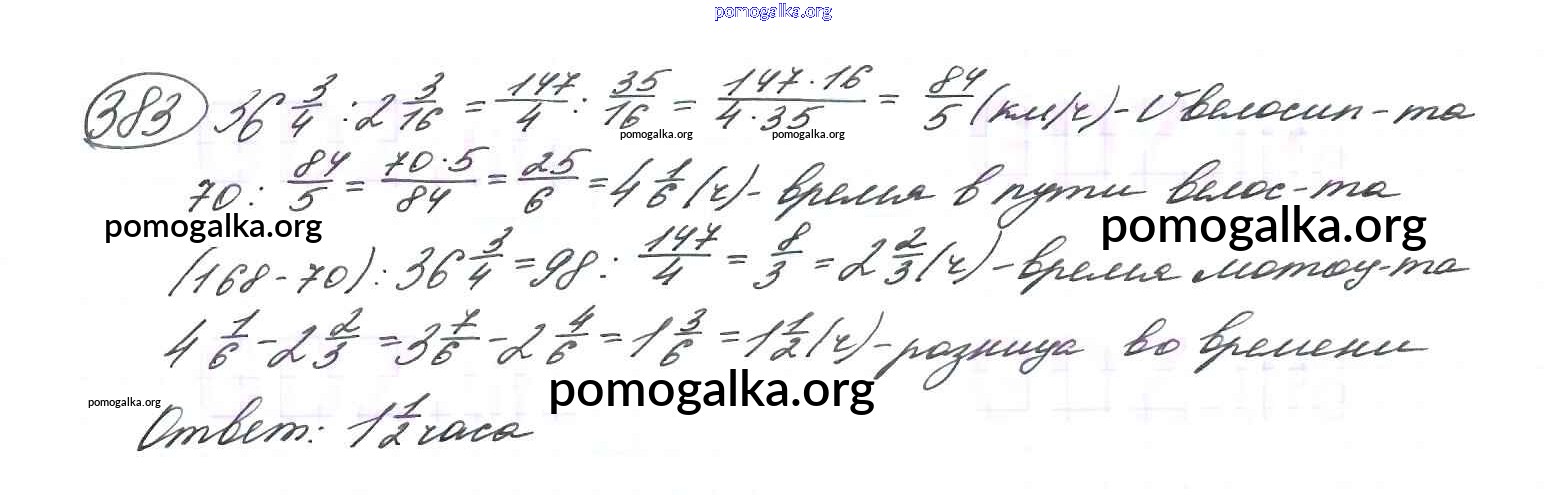 pomogalka.org
383 36 3/4 : 2 3/16 = 147/4 : 35/16 = 147·16/4·35 = 84/5 (км/ч) - V велосип-та
pomogalka.org pomogalka.org
70 : 84/5 = 70·5/84 = 25/6 = 4 1/6 (ч) - время в пути велос-та
pomogalka.org pomogalka.org
(168-70) : 36 3/4 = 98 : 147/4 = 8/3 = 2 2/3 (ч) - время мотоц-та
4 1/6 - 2 2/3 = 3 7/6 - 2 4/6 = 1 3/6 = 1 1/2 (ч) - разница во времени
pomogalka.org
pomogalka.org
Ответ: 1 1/2 часа